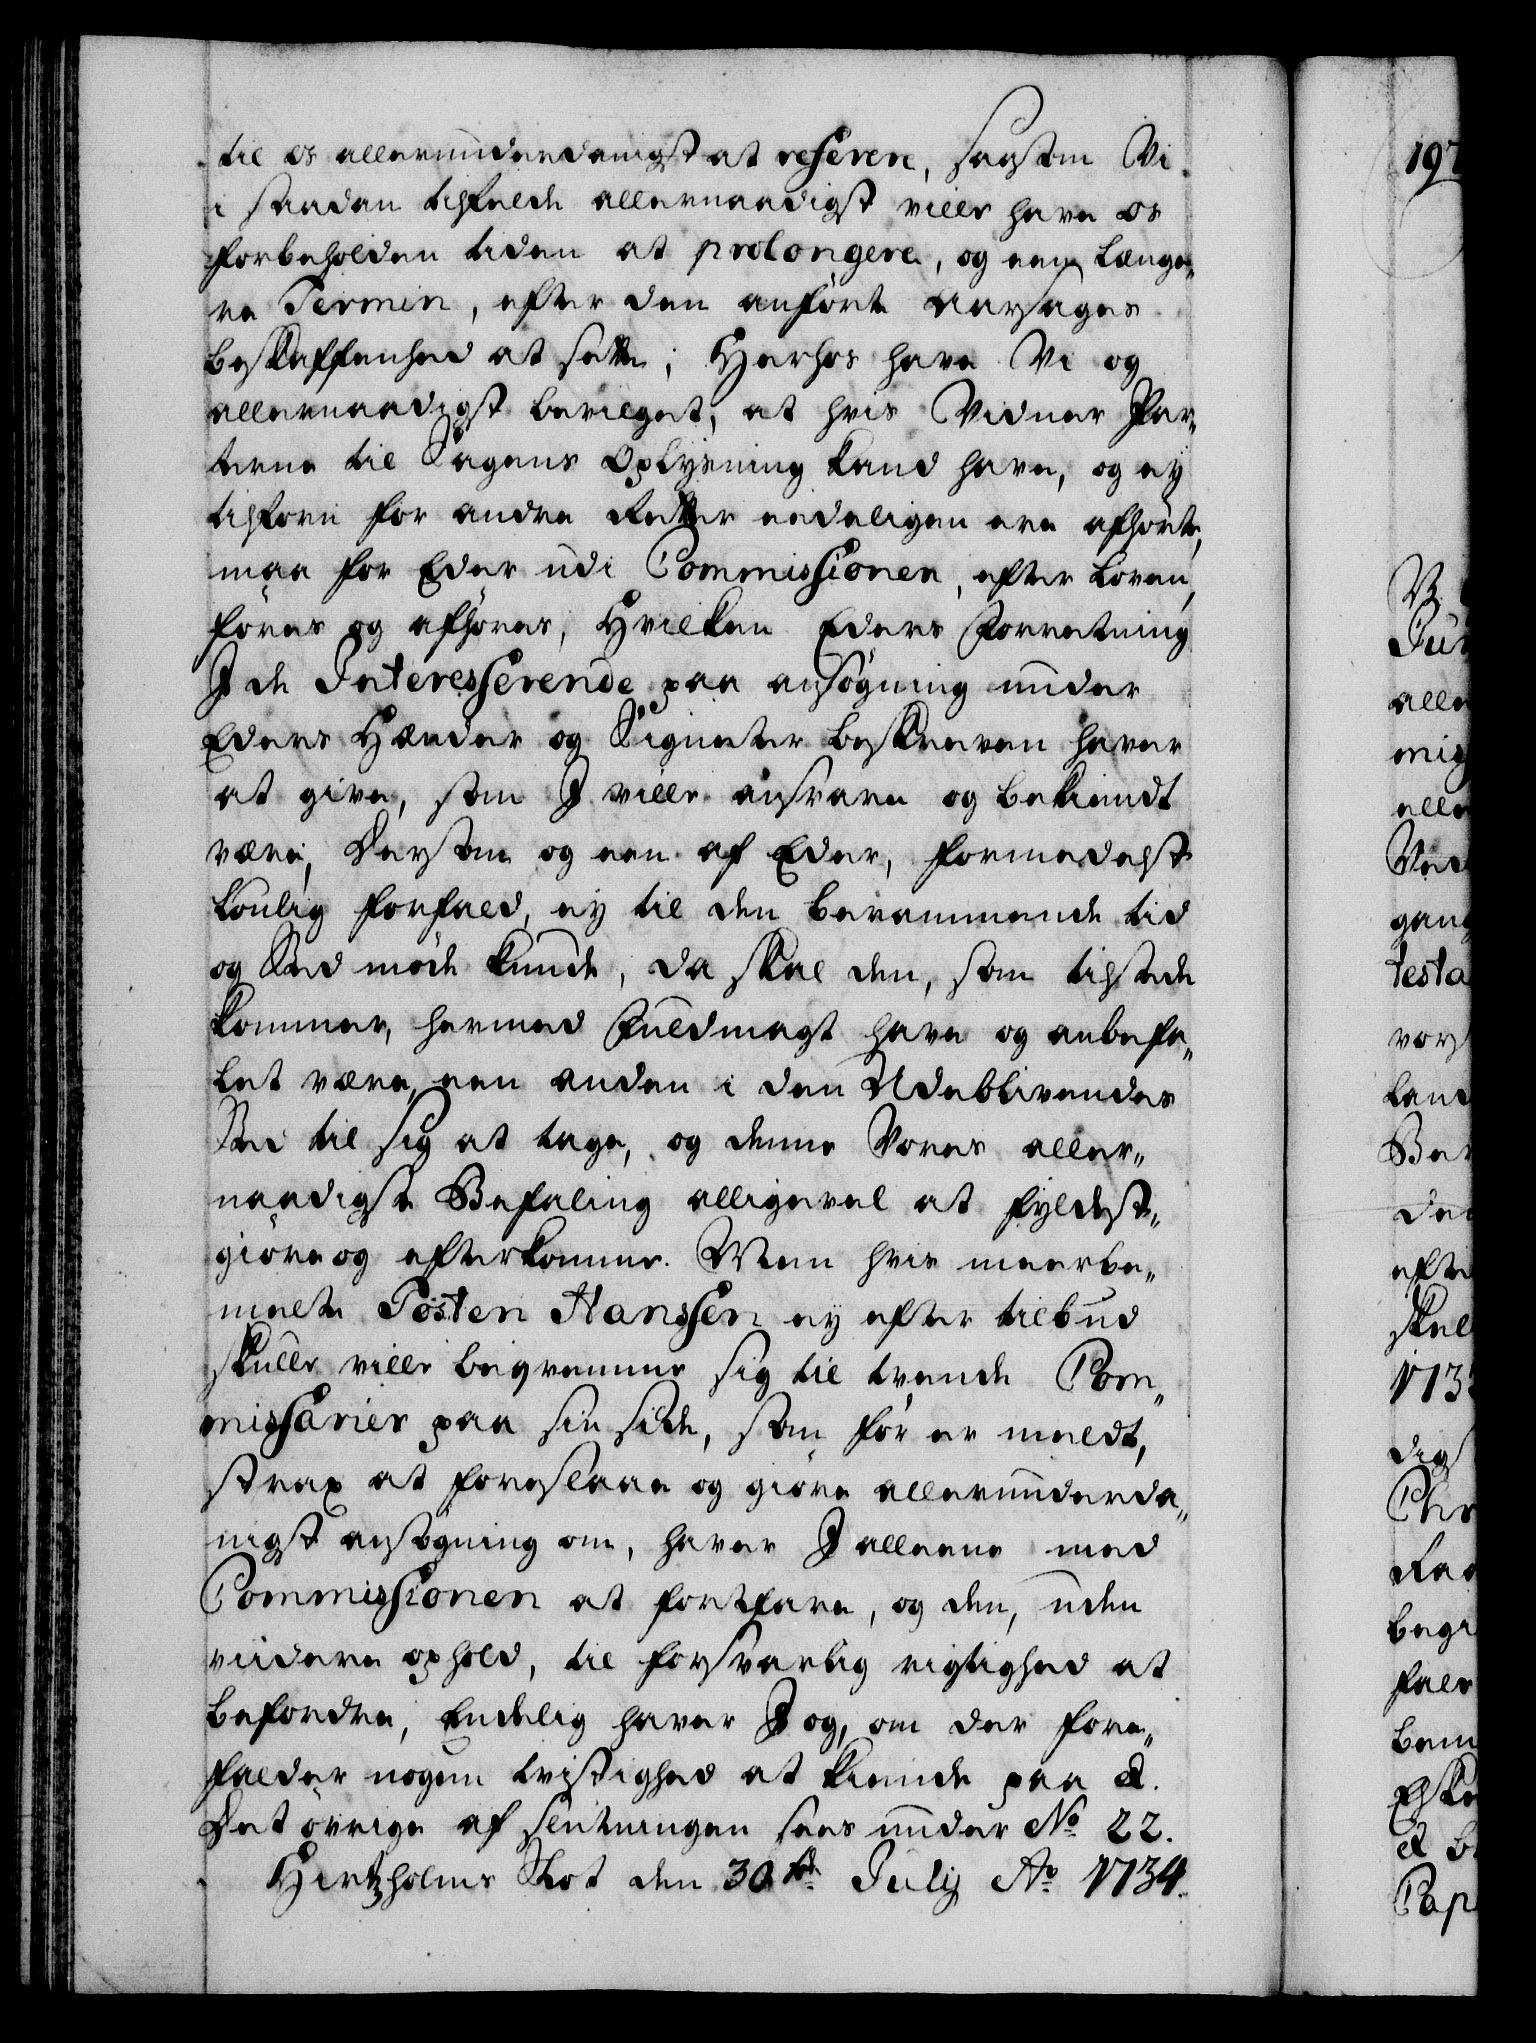 til os allerunderdanigst at referere, saasom Vi
i saadan tilfelde allernaadigst ville have os
forbeholden tiden at prolongere, og een længe„
re Termin, efter den anförte Aarsages
beskaffenhed at sætte; Hærhos have Vi og
allernaadigst bevilget, at hvis Vidner Par„
terne til Sagens Oplysning kand have, og ey
tilforn for andre Retter eedeligen ere afhörte,
maa for Eder udi Commissionen, efter Loven,
föres og afhöres, Hvilken Eders Forretning
I de Interesserende paa ansögning under
Eders Hænder og Signeter beskreven haver
at give, som I ville ansvare og bekiendt
være; Dersom og een af Eder, formedelst
lovlig forfald, ey til den berammende tid
og Sted möde kunde, da skal den, som tilstede
kommer, hermed Fuldmagt have og anbefa„
let være, een anden i den Udeblivendes
Sted til sig at tage, og denne Vores aller„
naadigste Befaling alligevel at fyldest„
giöre og efterkomme. Men hvis meerbe„
melte Tösten Hanssen ey efter tilbud
skulle ville beqvemme sig til tvende Com„
missarier paa sin side, som för er meldt,
strax at foreslaae og giöre allerunderda„
nigst ansögning om, haver I alleene med
Commissionen at fortfare, og den, uden
viidere ophold, til forsvarlig rigtighed at
befordre, Endelig haver I og, om der fore„
falder nogen tvistighed at kiende paa &.
Det övrige af slutningen sees under No 22.
Hirtzholms Slot den 30te July Ao 1734.
197
Jur
alle
mis
alle
Ved
gang
testa
vors
land
Ber
Den
efte
skul
1733
digs
Chr
Raa
begi
fale
bem
Elske
& b
Pap